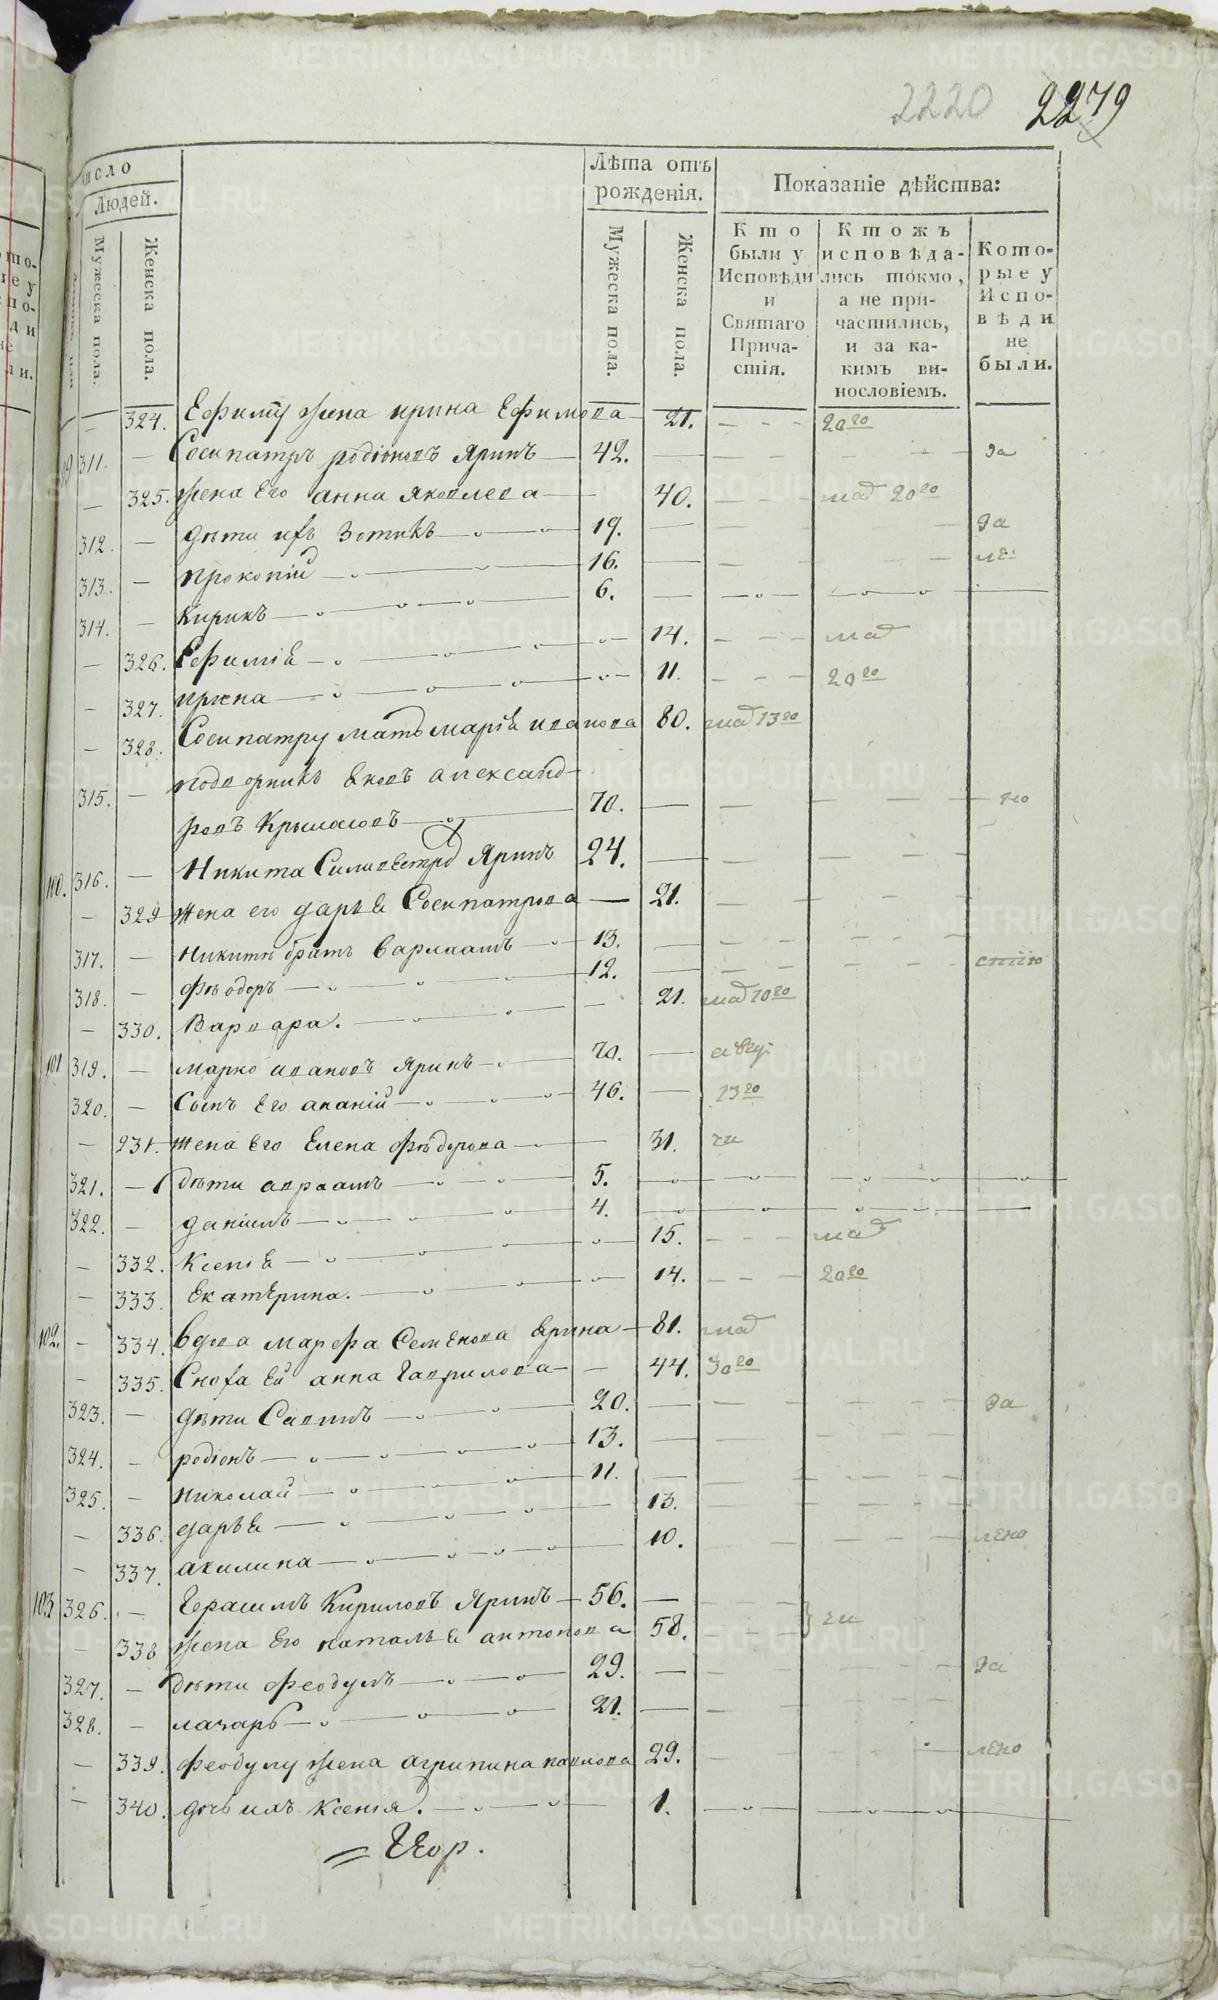 2220 2279
Число Людей.
Мужеска пола.
Женска пола.
Лѣта отъ рожденія.
Мужеска пола.
Женска пола.
Показаніе дѣйства:
Кто были у Исповѣди и Святаго Причастія.
Ктожъ исповѣдались токмо, а не причастились, и за какимъ винословіемъ.
Которые у Исповѣди не были.
— 324. Ефиму жена ирина Ефимова — 21. 20го
311. — Сосипатръ родіоновъ Яринъ — 42. — за
— 325. жена Его анна яковлева — 40. мая 20го
312. — дѣти ихъ Зотикъ — 19. — за
313. — прокопій — 16. —
314. — кирикъ — 6. —
— 326. Ефимія — 14. мая
— 327. ирина — 11. 20го
— 328. Сосипатру мать марія иванова 80. мая 13го
315. — александ-
ровъ Крыласовъ — 70. —
100. 316. — Никита Силивестров Яринъ 24. —
— 329 жена его дарья Сосипатрова — 21.
317. — никитѣ братъ варлаамъ — 13. —
318. — Ѳеодоръ — 12. —
— 330. Варвара. — 21. мая 20го
101 319. — марко ивановъ яринъ — 70. —
320. — Сынъ Его ананій — 46. — 13го
— 231. жена его Елена Ѳедорова — 31. чи
321. — дѣти авраамъ — 5. —
322. — даніилъ — 4. —
— 332. Ксенія — 15. мая
— 333. Екатерина. — 14. 20го
102. — 334. вдова марфа Семенова ярина — 81. мая
— 335. Сноха Ей анна Гаврилова — 44. 30го
323. — дѣти Саввинъ — 20. — за
324. — родіонъ — 13. —
325. — николай — 11. —
— 336. дарья — 13.
— 337. акилина — 10. лено
103. 326. — Герасимъ Кириловъ Яринъ — 56. —
— 338 жена Его наталья антонова 58. чи
327. — дѣти Феодулъ — 29. — за
328. — лазарь — 21. —
— 339. Феодулу жена агрипина павлова 29. лено
— 340. дочь ихъ Ксенія. — 1.
METRIKI.GASO-URAL.RU